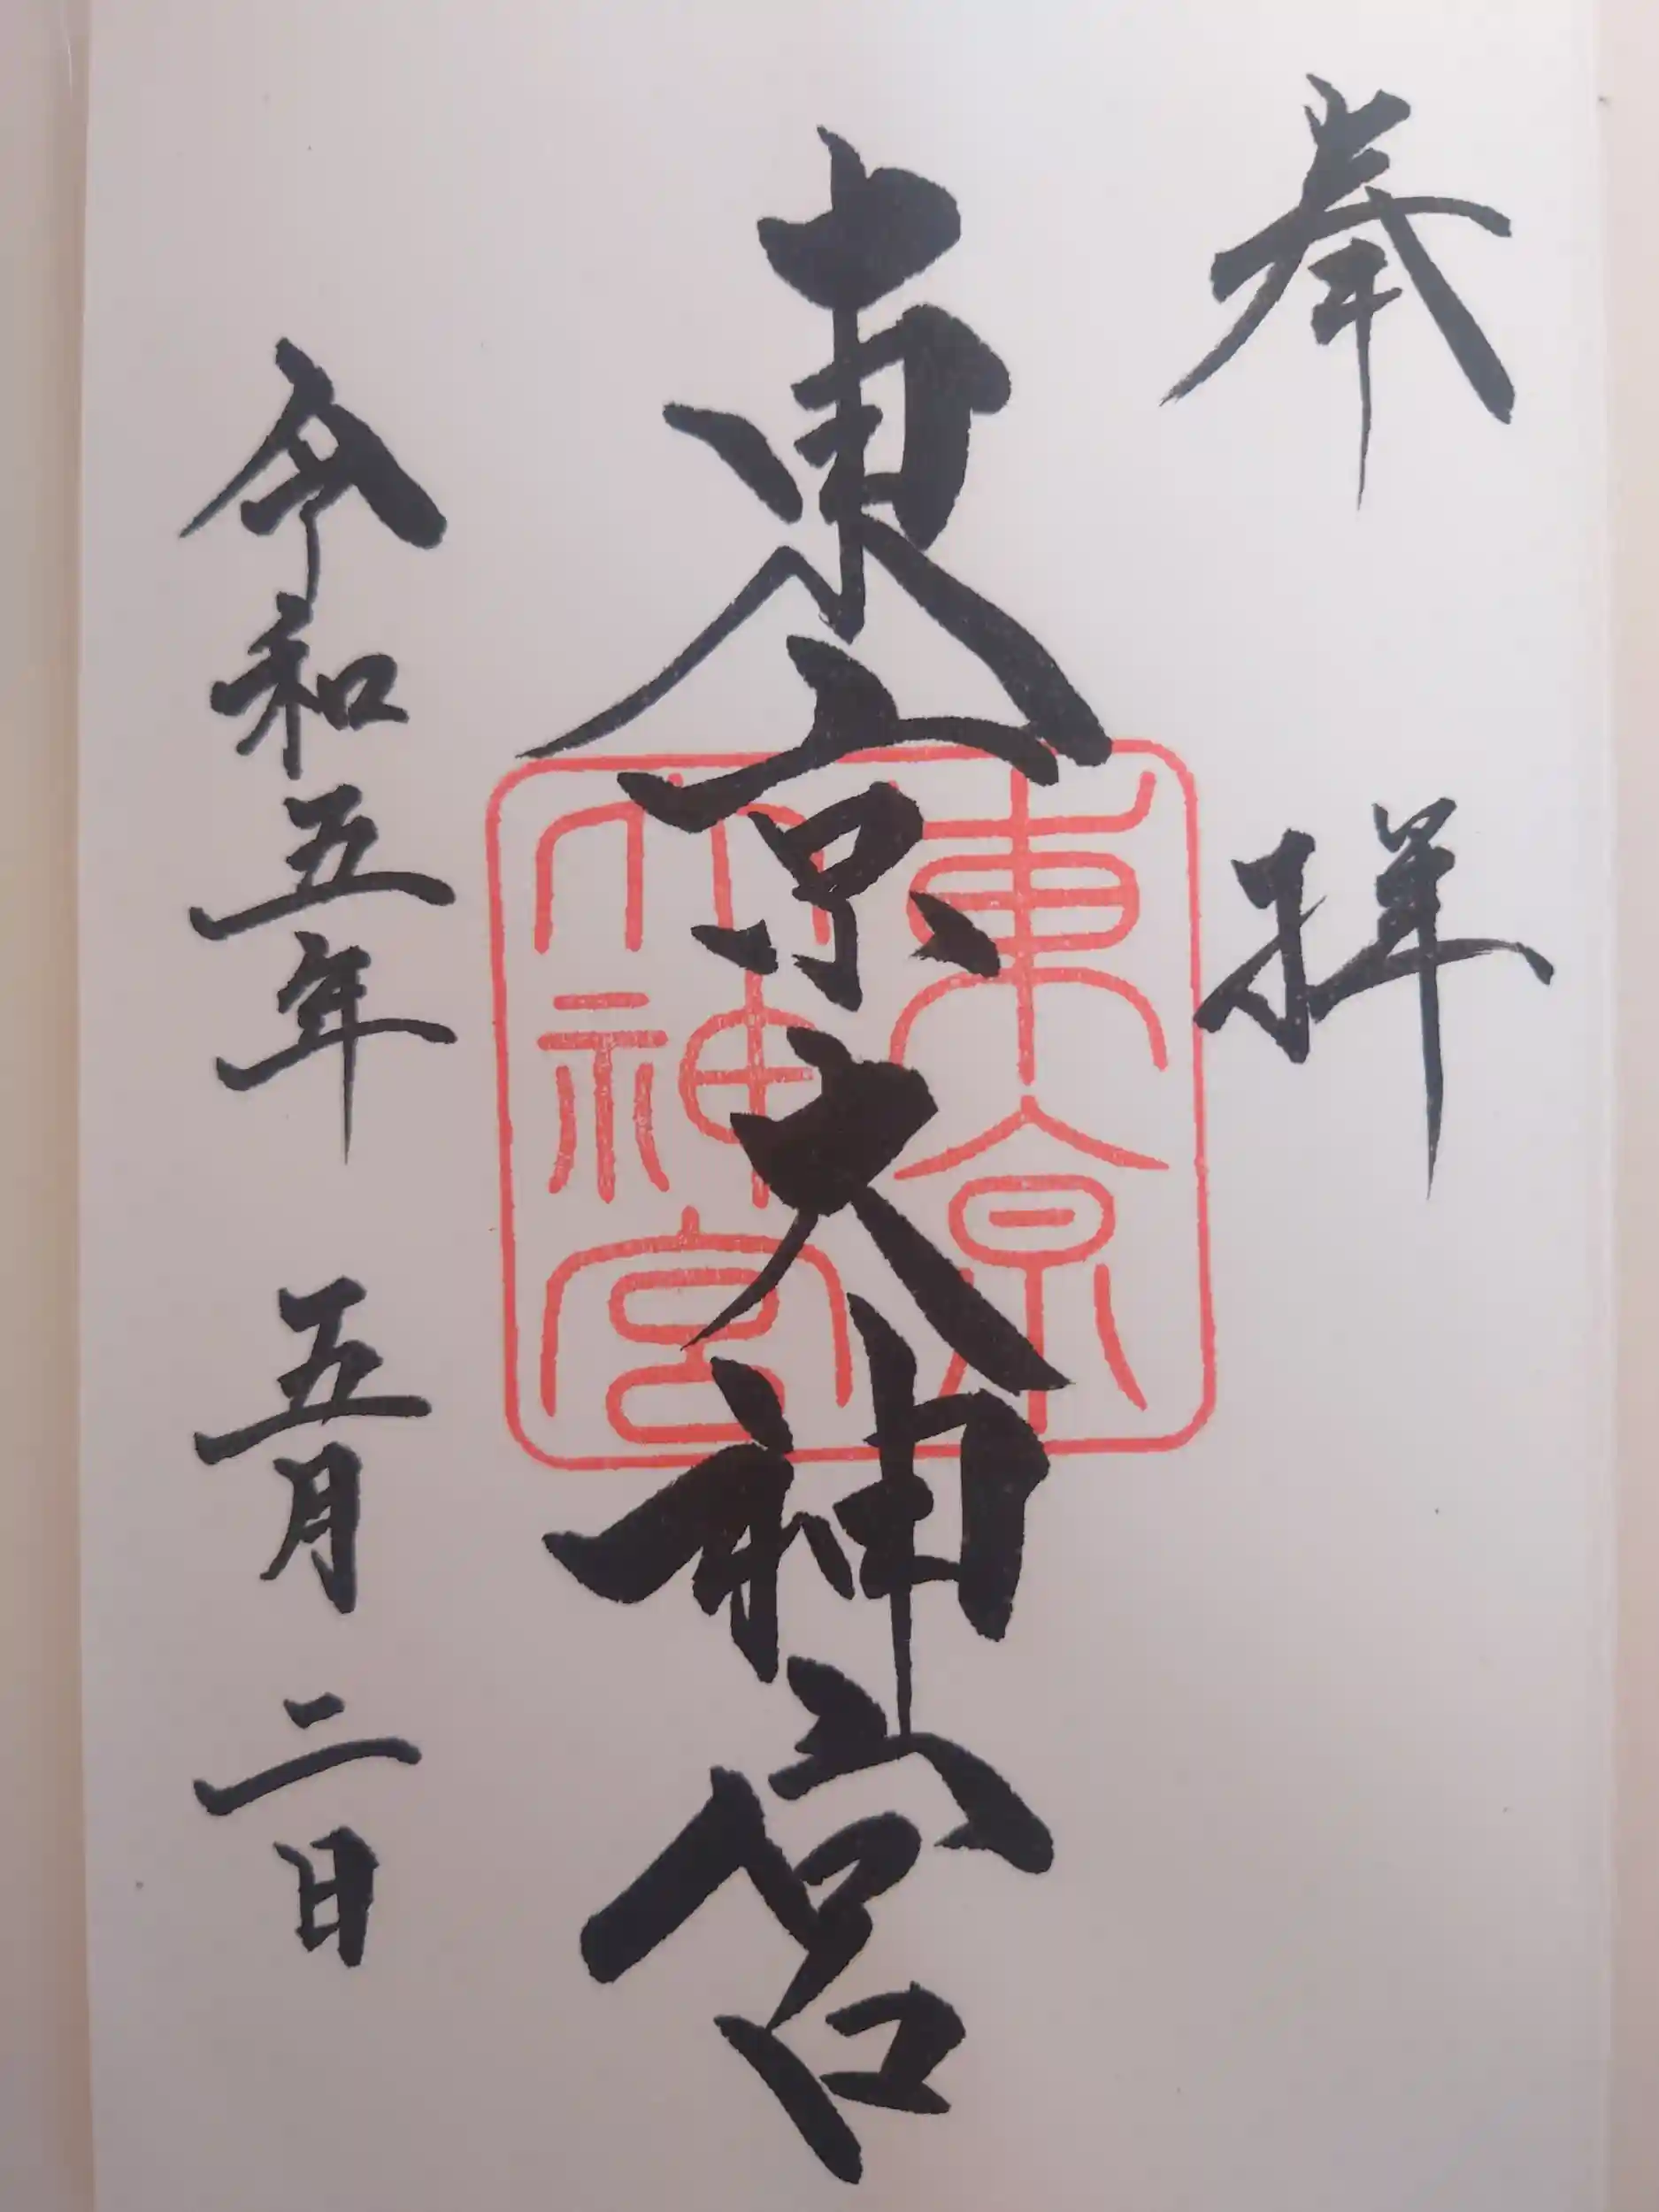 奉拝
東京大神宮
東京
大神宮
令和五年 五月 二日